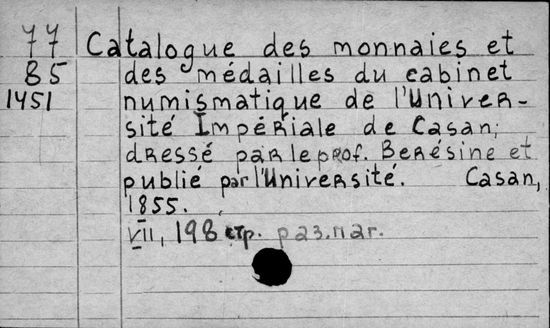 77 Catalogue des monnaies et
85 des médailles du cabinet
1451 numismatique de l'Univer-
sité Impériale de Casan;
dressé par le prof. Berésine et
publié par l'Université. Casan,
1855.
VII, 198 стр. раз. паг.